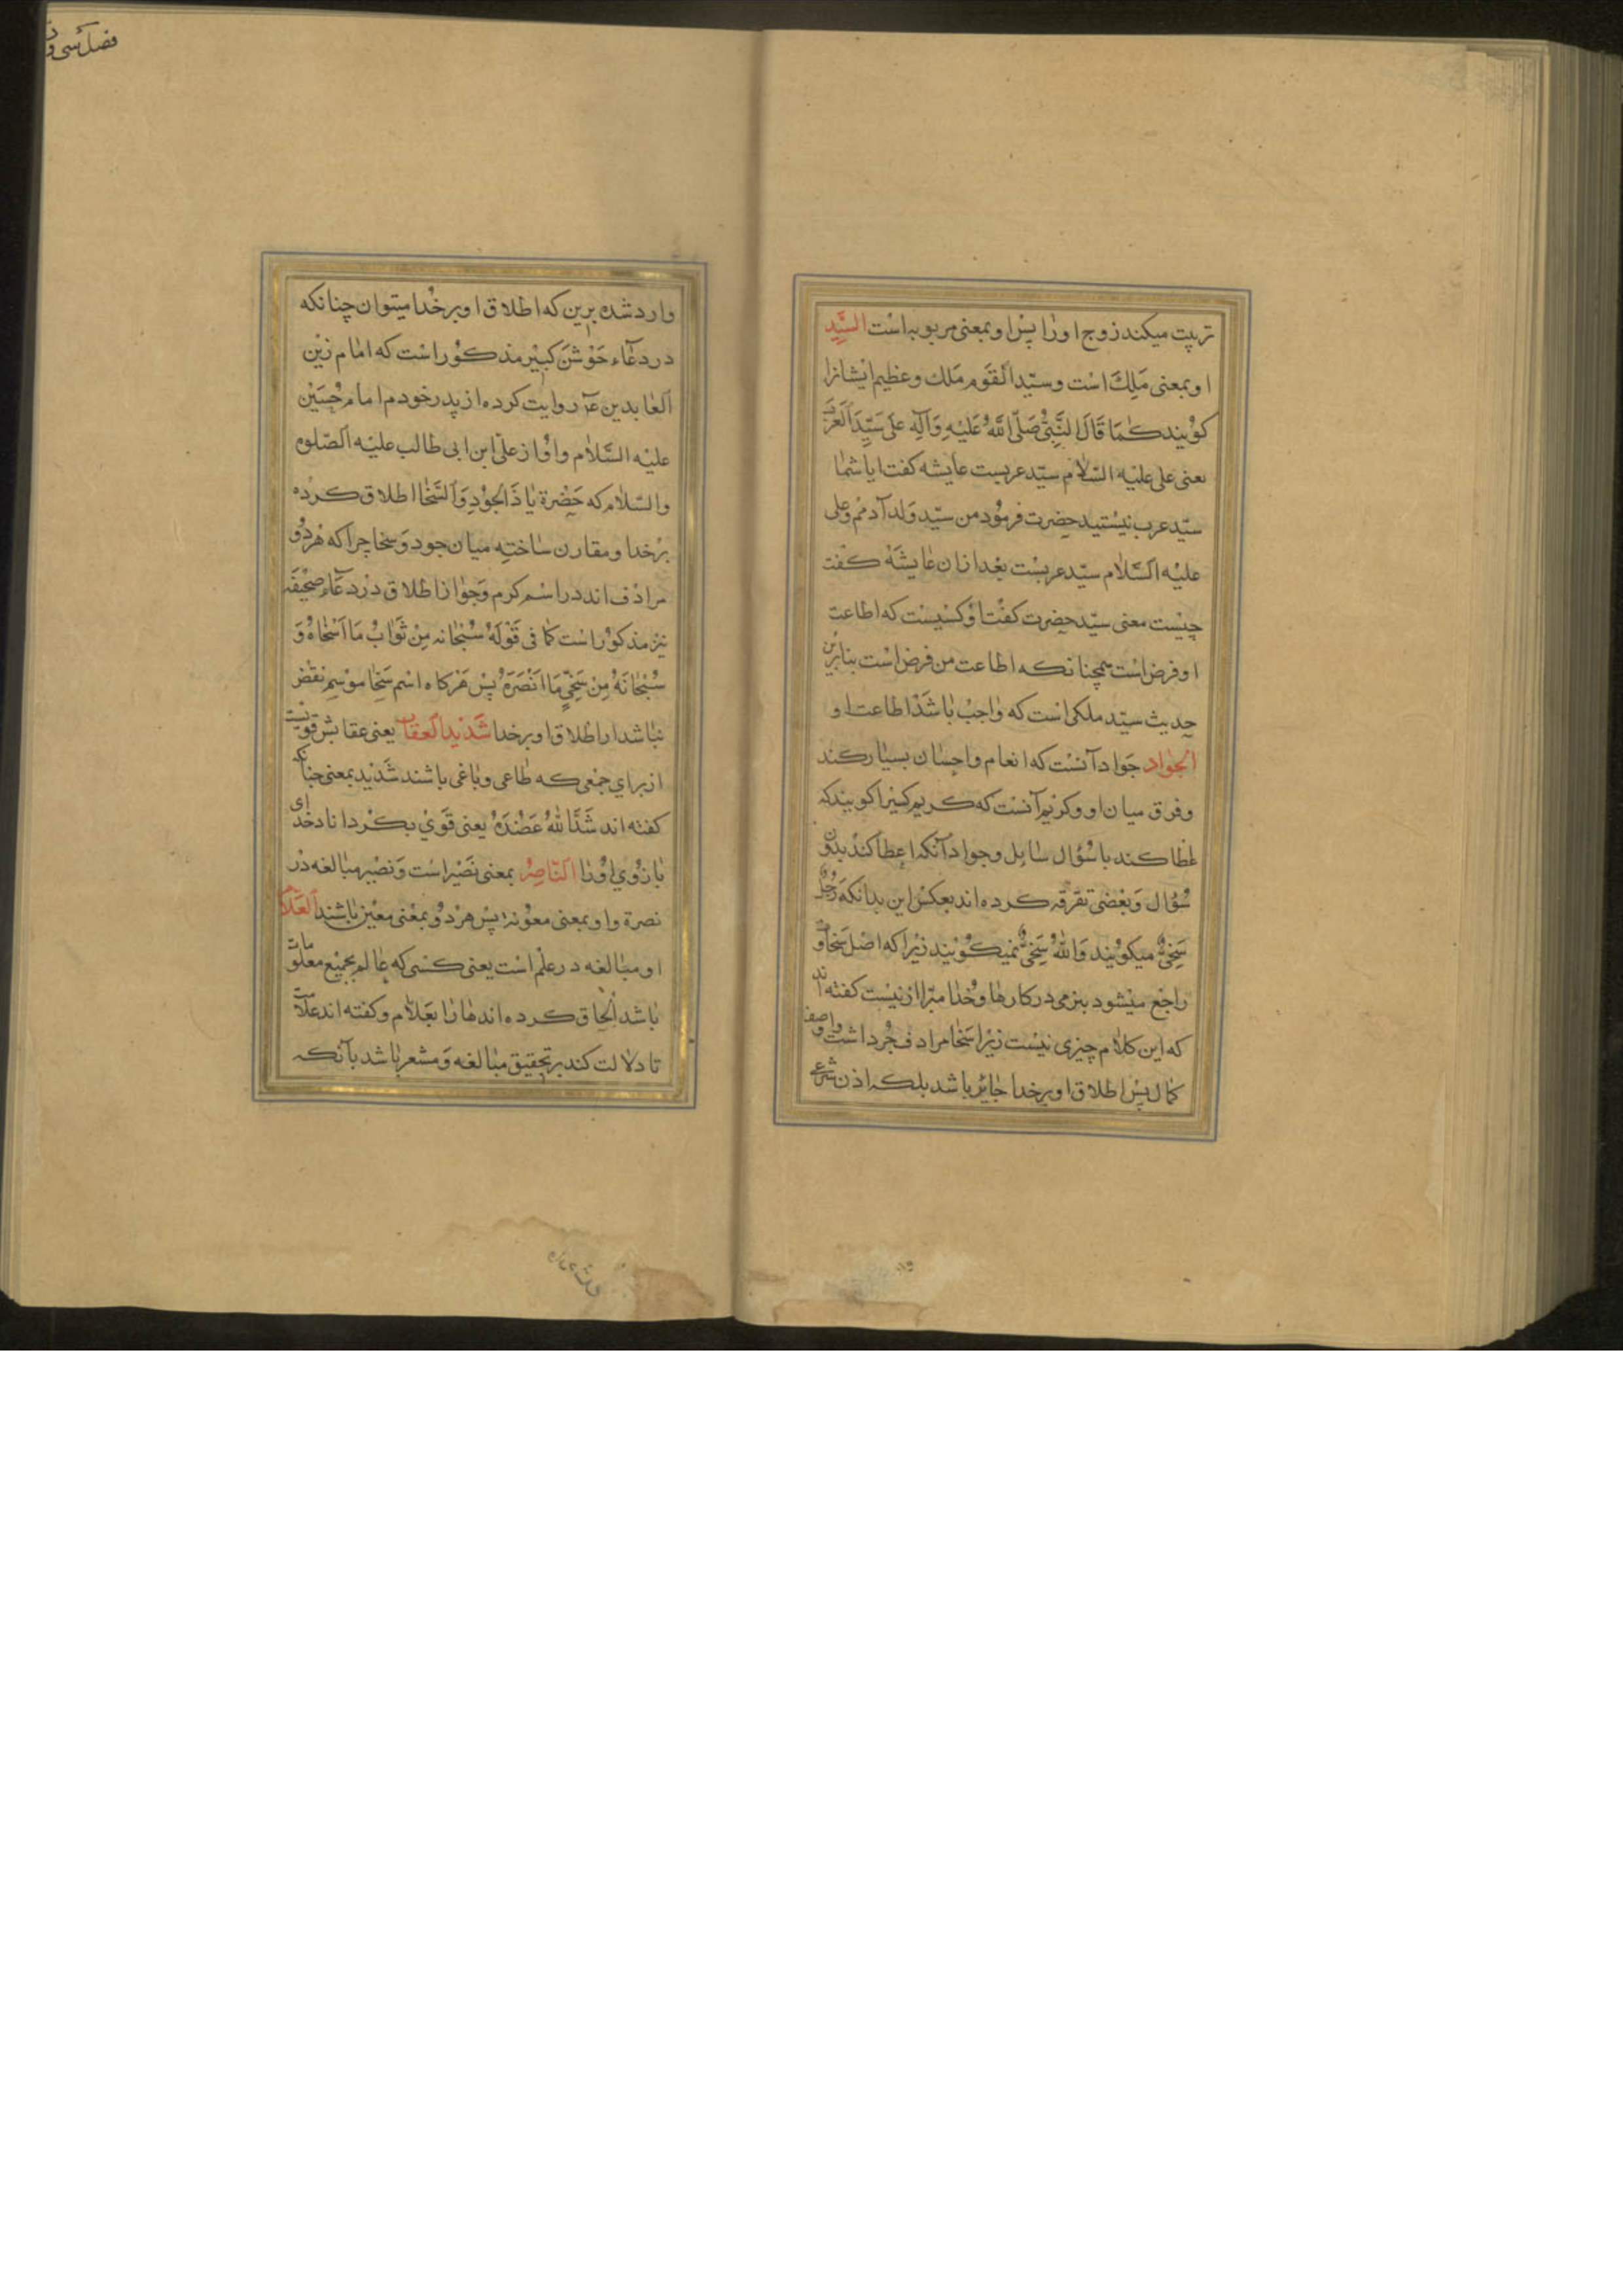 تربیت میکند زوج او را پس او بمعنی مربوبه است السَّیِّد
او بمعنی مَلِكَ است و سیّد القوم مَلك و عظیم ایشانرا
کویند کَمَا قَالَ النَّبِیُّ صَلَّی اللَّهُ عَلَیْهِ وَآلِهِ عَلیٌ سَیِّدُ العَرَب
یعنی علی علیه السّلام سیّد عربست عایشه کفت ایا شما
سیّد عرب نیستید حضرت فرمود من سیّد ولد آدمم و علی
علیه السّلام سیّد عربست بعد ازان عایشه کفت
چیست معنی سیّد حضرت کفت او کسیست که اطاعت
او فرض است همچنانکه اطاعت من فرض است بنابرین
حدیث سیّد ملکی است که واجب باشد اطاعت او
الجواد جَواد آنست که انعام و احسان بسیار کند
و فرق میان او و کریم آنست که کریم کسیرا کویند که
عطا کند با سُؤال سایل و جواد آنکه اعطا کند بدون
سُؤال وَ بعضی تفرقه کرده اند بعکس این بدانکه رَجُلٌ
سَخِیٌّ میکویند وَ اللهُ سَخِیٌّ نمیکویند زیرا که اصل سَخاوت
راجع میشود بنرمی در کارها و خدا مبرّا ازینست کفته اند
که این کلام چیزی نیست زیرا سَخا مرادف جُود است و اوصف
کمال پس اطلاق او بر خدا جایز باشد بلکه اذن شرعی
وارد شده برین که اطلاق او بر خدا میتوان چنانکه
در دعاء جَوْشَن کبیر مذکور است که امام زین
العابدین عَ روایت کرده از پدر خودم امام حُسَیْن
علیه السَّلام و او از علی ابن ابی طالب علیه الصّلوة
والسّلام که حَضْرة یا ذَالجُوْدِ وَالسَّخَا اطلاق کرده
بر خدا و مقارن ساخته میان جود وَ سخا چرا که هر دُو
مرادف اند در اسم کرم وَ جواز اطلاق در دعاء صحیفه
نیز مذکور است کما فی قَوْلَهُ سُبْحَانه مِنْ تَوَّابٍ مَا اَسْخَاهُ وَ
سُبْحَانَهُ مِنْ سَخِیٍّ مَا اَنْصَرَهُ پس هَرکاه اسْم سَخا موسم نقض
نباشد اراطلاق او بر خدا شَدیدالعقاب یعنی عقابش قویست
از برای جمعی که طاعی و باغی باشند شَدید بمعنی چنانکه
کفته اند شَدَّ اللهُ عَضُدَهُ یعنی قَوِیْ بکرداناد خدای
بازوی او را النّاصِرُ بمعنی نَصیر است وَ نَصیر مبالغه در
نصرة و او بمعنی معونه پس هر دُو بمعنی معین باشند العَلّام
او مبالغه در علْم است یعنی کسی که عالم بجمیع معلومات
باشد الحاق کرده اند ها را بعَلاّم و کفته اند علّامة
تا دلالت کند بر تحقیق مبالغه وَ مشعر باشد بآنکه